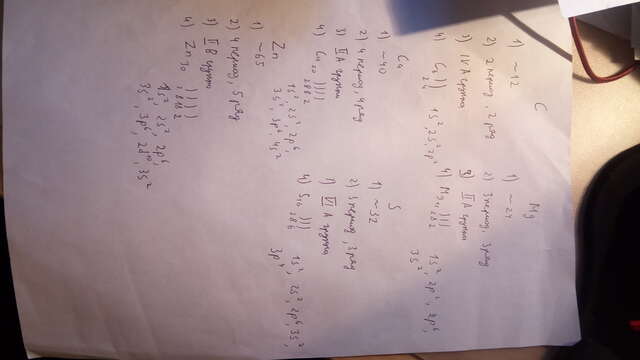 C
1) ~12
2) 2 период, 2 ряд
3) IV A группа
4) C₆ ))
2 4
1s², 2s², 2p²
Mg
1) ~24
2) 3 период, 3 ряд
3) II A группа
4) Mg₁₂ )))
2 8 2
1s², 2p², 2p⁶,
3s²
Ca
1) ~40
2) 4 период, 4 ряд
3) II A группа
4) Ca₂₀ ))))
2 8 8 2
1s², 2s², 2p⁶,
3s², 3p⁶, 4s²
S
1) ~32
2) 3 период, 3 ряд
3) VI A группа
4) S₁₆ )))
2 8 6
1s², 2s², 2p⁶, 3s²,
3p⁴
Zn
1) ~65
2) 4 период, 5 ряд
3) II B группа
4) Zn₃₀ ))))
2 8 18 2
1s², 2s², 2p⁶,
3s², 3p⁶, 2d¹⁰, 3s²